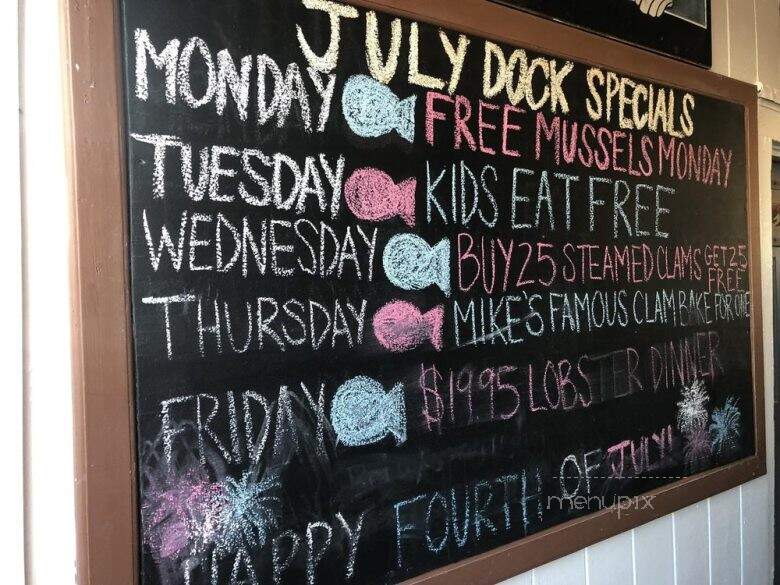 JULY DOCK SPECIALS
MONDAY FREE MUSSELS MONDAY
TUESDAY KIDS EAT FREE
WEDNESDAY BUY 25 STEAMED CLAMS GET 25 FREE
THURSDAY MIKE'S FAMOUS CLAM BAKE FOR ONE
FRIDAY $19.95 LOBSTER DINNER
HAPPY FOURTH OF JULY!
menupix